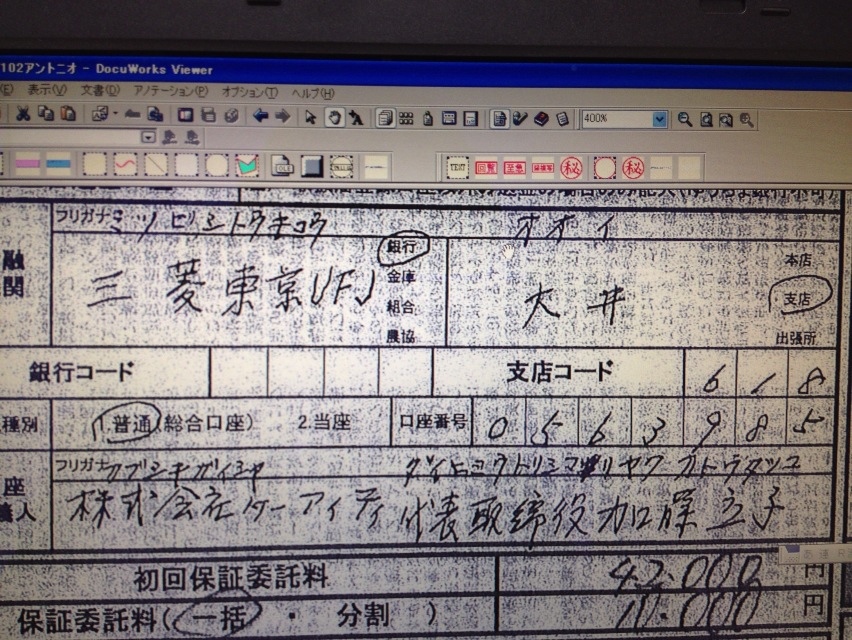 102アントニオ - DocuWorks Viewer
(E) 表示(V) 文書(D) アノテーション(P) オプション(T) ヘルプ(H)
400%
TEXT 回覧 至急 ㊙ ㊙
フリガナ ミツビシトウキョウ オオイ
融 三菱東京UFJ 銀行 大井 本店
関 金庫 支店
組合
農協 出張所
銀行コード 支店コード 6 1 8
種別 1.普通(総合口座) 2.当座 口座番号 0 5 6 3 9 8 5
フリガナ カブシキガイシャ ダイヒョウトリシマリヤク
座 株式会社ケーアイティ 代表取締役 加 立子
義人
初回保証委託料 42.000 円
保証委託料(一括 ・ 分割 ) 10.000 円